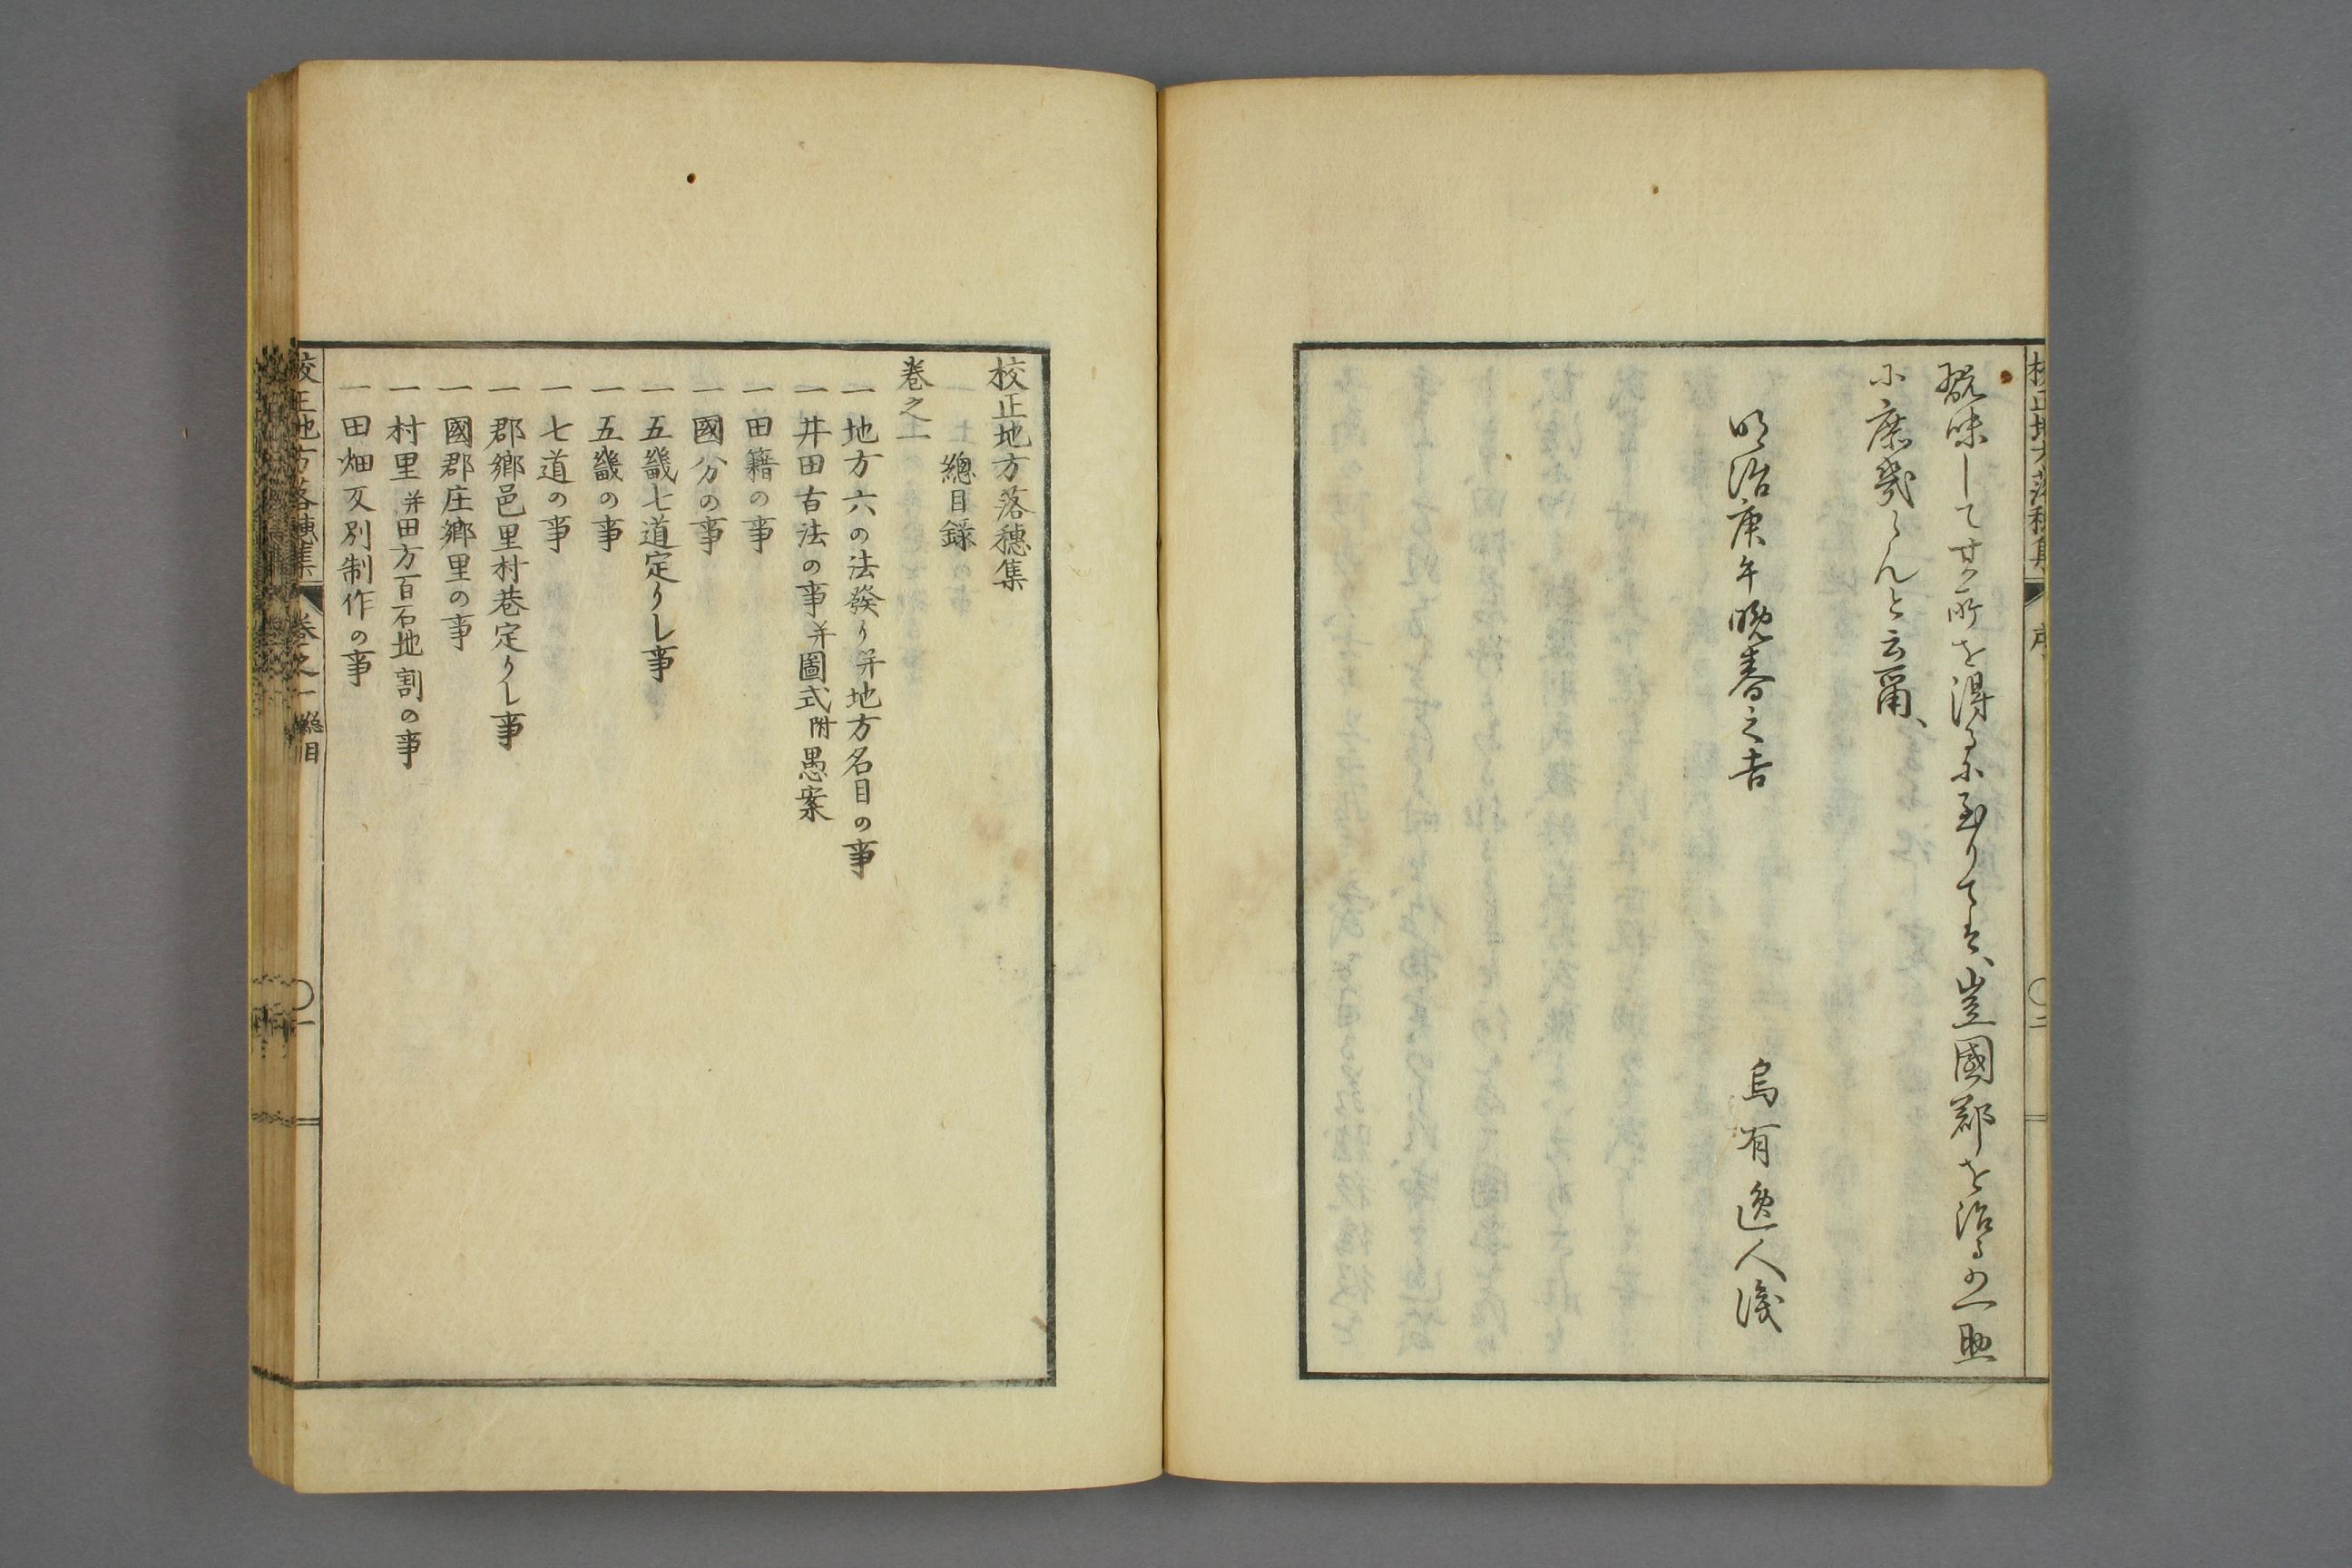 翫味して其所を得るに至りては、豈國郡を治るの一助
に庶幾らんと云爾、
明治庚午晩春之吉
烏有逸人識
校正地方落穂集
總目録
巻之一
一 地方六の法發り并地方名目の事
一 井田古法の事并圖式附愚案
一 田籍の事
一 國分の事
一 五畿七道定りし事
一 五畿の事
一 七道の事
一 郡鄉邑里村巷定りし事
一 國郡庄鄉里の事
一 村里并田方百石地割の事
一 田畑反別制作の事
校正地方落穂集 巻之一 總目 〇一